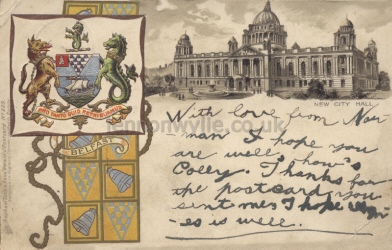 NEW CITY HALL
PRO TANTO QUID RETRIBUAMUS
BELFAST
tennonwylie.co.uk
With love from Nor-
man I hope you
are well, how's
Colly. Thanks for
the postcard you
sent me I hope
es is well.